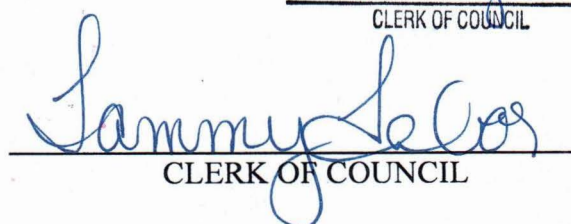 CLERK OF COUNCIL
Tammy
CLERK OF COUNCIL